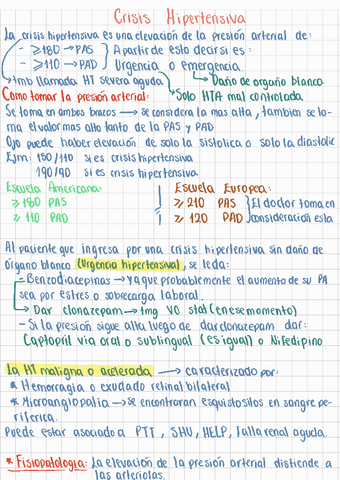 Crisis Hipertensiva
La crisis hipertensiva es una elevación de la presión arterial de:
- ≥180 → PAS } A partir de esto decir si es:
- ≥110 → PAD } Urgencia o emergencia.
→ tmb llamada HT severa aguda → Daño de organo blanco
Como tomar la presión arterial: → Solo HTA mal controlada
Se toma en ambos brazos → se considera la mas alta, tambien se to-
ma el valor mas alto tanto de la PAS y PAD
Ojo puede haber elevación de solo la sistolica o solo la diastolic
Ejm: 150/110 si es crisis hipertensiva
190/90 si es crisis hipertensiva
Escuela Americana:
≥ 180 PAS
≥ 110 PAD
Escuela Europea:
≥ 210 PAS } El doctor toma en
≥ 120 PAD } consideración esta
Al paciente que ingresa por una crisis hipertensiva sin daño de
órgano blanco (Urgencia hipertensiva), se le da:
- Benzodiacepinas → ya que probablemente el aumento de su PA
sea por estres o sobrecarga laboral.
→ Dar clonazepam → 1mg VO stat (en ese momento)
- Si la presión sigue alta luego de dar clonazepam dar:
Captopril via oral o sublingual (es igual) o Nifedipino
La HT maligna o acelerada → caracterizado por:
* Hemorragia o exudado retinal bilateral
* Microangiopatia → se encontraran esquistositos en sangre pe-
riferica.
Puede estar asociado a PTT, SHU, HELP, falla renal aguda.
* Fisiopatologia: La elevación de la presión arterial distiende a
las arteriolas.